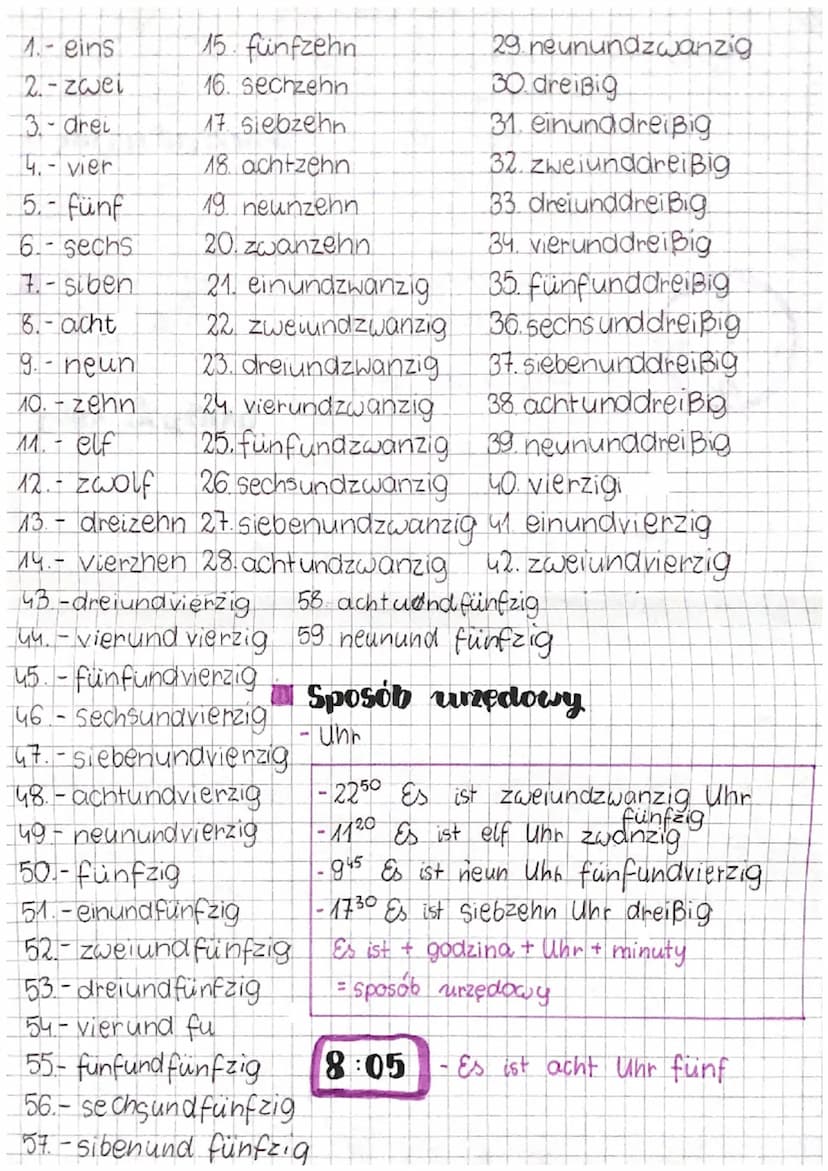 1.- eins
2.- zwei
3.- drei
4.- vier
5.- fünf
6.- sechs
7.- siben
8.- acht
9.- neun
10.- zehn
11.- elf
12.- zwolf
13.- dreizehn
14.- vierzhen
15. fünfzehn
16. sechzehn
17. siebzehn
18. achtzehn
19. neunzehn
20. zwanzehn
21. einundzwanzig
22. zweiundzwanzig
23. dreiundzwanzig
24. vierundzwanzig
25. fünfundzwanzig
26. sechsundzwanzig
27. siebenundzwanzig
28. achtundzwanzig
29. neunundzwanzig
30. dreißig
31. einunddreißig
32. zweiunddreißig
33. dreiunddreißig
34. vierunddreißig
35. fünfunddreißig
36. sechsunddreißig
37. siebenunddreißig
38. achtunddreißig
39. neununddreißig
40. vierzig
41. einundvierzig
42. zweiundvierzig
43.-dreiundvierzig
44.-vierund vierzig
45.-fünfundvierzig
46.- sechsundvierzig
47.-siebenundvierzig
48.-achtundvierzig
49-neunundvierzig
50.-fünfzig
51.-einundfünfzig
52.-zweiundfünfzig
53.-dreiundfünfzig
54.-vierund fu
55.- funfundfünfzig
56.- sechsundfünfzig
57.-sibenund fünfzig
58. achtundfünfzig
59. neunund fünfzig
Sposób urzędowy
- Uhr
- 22⁵⁰ Es ist zweiundzwanzig Uhr fünfzig
- 11²⁰ Es ist elf Uhr zwanzig
- 9⁴⁵ Es ist neun Uhr fünfundvierzig
- 17³⁰ Es ist siebzehn Uhr dreißig
Es ist + godzina + Uhr + minuty
= sposób urzędowy
8:05 - Es ist acht Uhr fünf